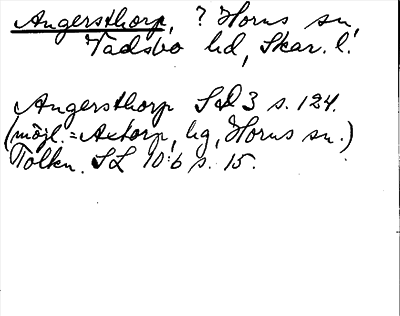 Angersthorp, ? Horns sn,
Vadsbo hd, Skar. l.
Angersthorp SD 3 s. 124.
(möjl. = Axtorp, hg, Horns sn.)
Tolkn. SL 10:6 s. 15.